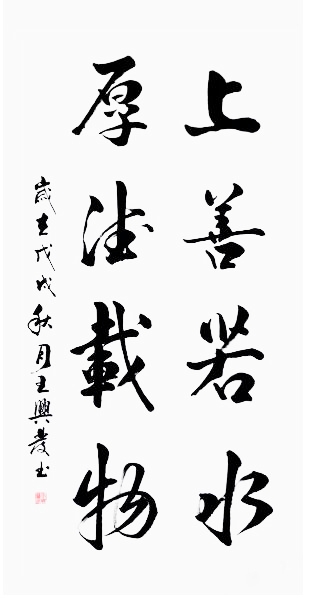 上善若水
厚德載物
歲在戊戌秋月王興發書